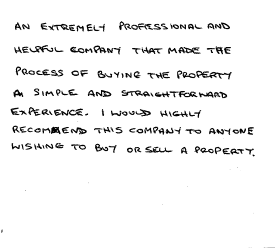 AN EXTREMELY PROFESSIONAL AND
HELPFUL COMPANY THAT MADE THE
PROCESS OF BUYING THE PROPERTY
A SIMPLE AND STRAIGHTFORWARD
EXPERIENCE. I WOULD HIGHLY
RECOMMEND THIS COMPANY TO ANYONE
WISHING TO BUY OR SELL A PROPERTY.